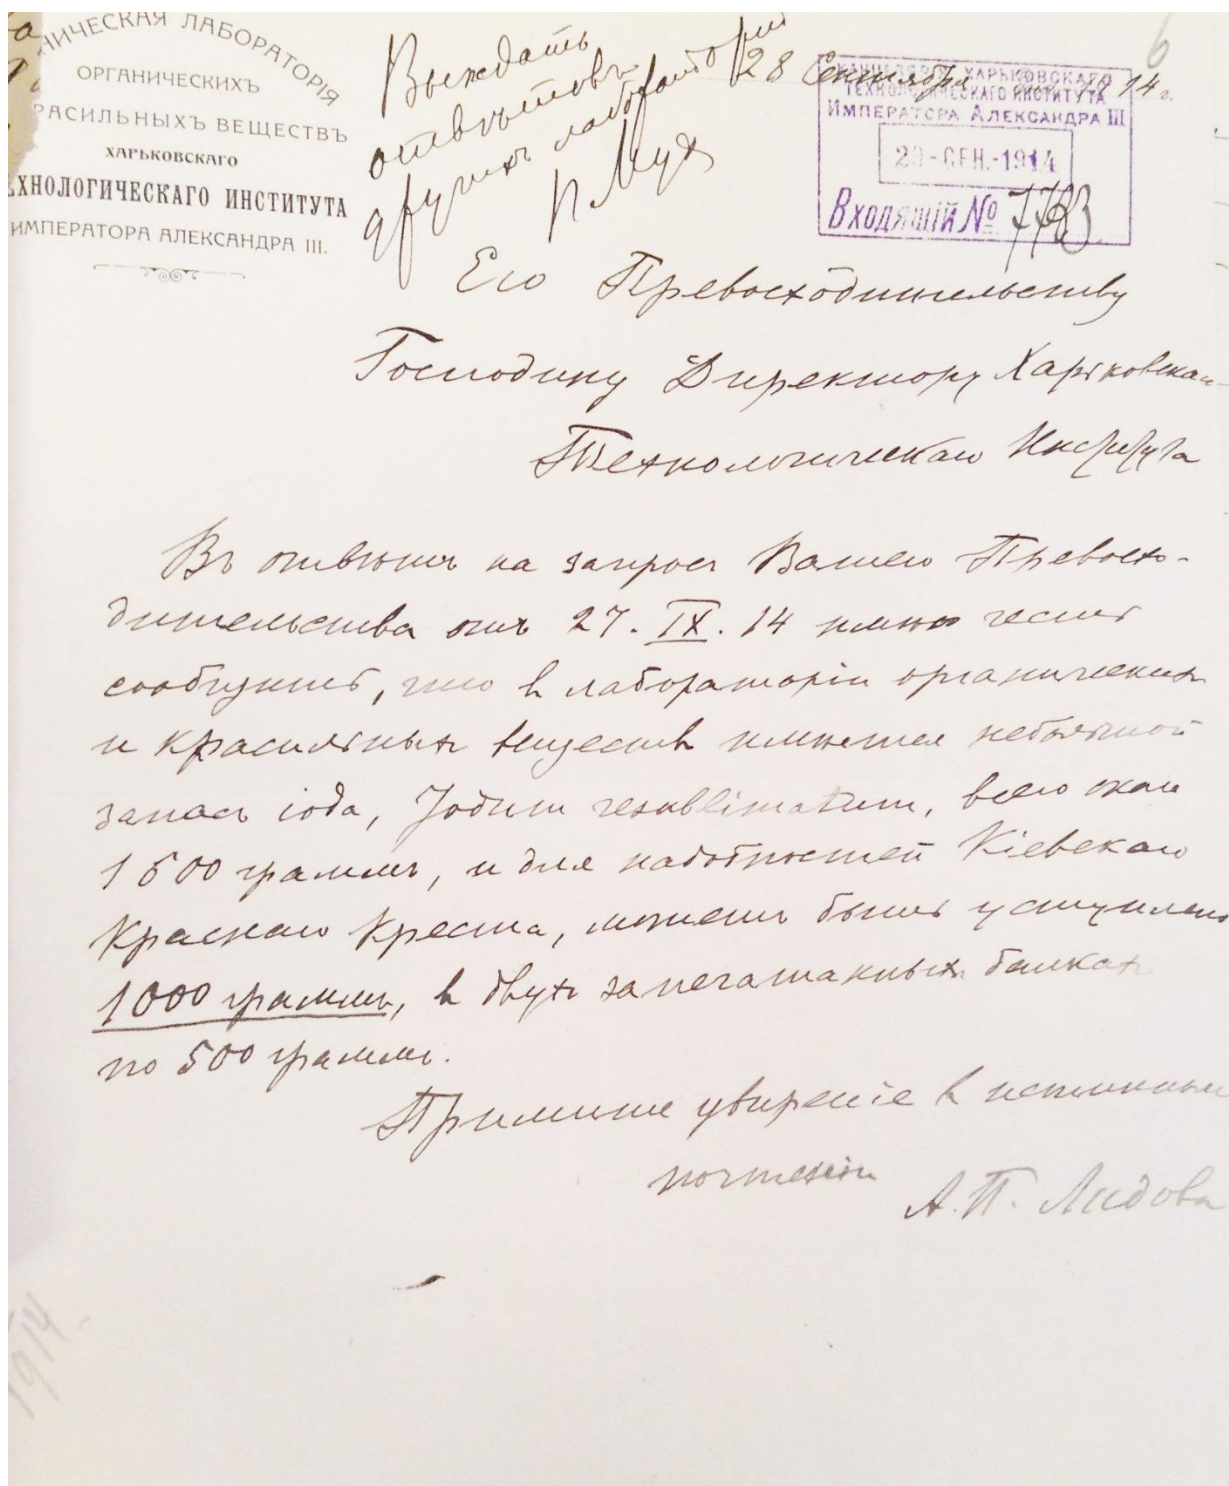 НИЧЕСКАЯ ЛАБОРАТОРІЯ
ОРГАНИЧЕСКИХЪ
РАСИЛЬНЫХЪ ВЕЩЕСТВЪ
ХАРЬКОВСКАГО
ЕХНОЛОГИЧЕСКАГО ИНСТИТУТА
ИМПЕРАТОРА АЛЕКСАНДРА III.
Выждать
отвѣтовъ
другихъ лабораторій
П. Мух
28 Сентября 1914 г.
КАНЦЕЛЯРІЯ ХАРЬКОВСКАГО
ТЕХНОЛОГИЧЕСКАГО ИНСТИТУТА
ИМПЕРАТОРА АЛЕКСАНДРА III
29-СЕН.-1914
ВХОДЯЩІЙ №
6
Его Превосходительству
Господину Директору Харьковскаго
Технологическаго Института
Въ отвѣтъ на запросъ Вашего Превосхо-
дительства отъ 27. IX. 14 имѣю честь
сообщить, что въ лабораторіи органическихъ
и красильныхъ веществъ имѣется небольшой
запасъ іода, Jodum resublimatum, всего около
1500 граммъ, и для надобностей Кіевскаго
Краснаго Креста, можетъ быть уступлено
1000 граммъ, въ двухъ запечатанныхъ банкахъ
по 500 граммъ.
Примите увѣреніе въ истинномъ
почтеніи
А. П. Лидовъ
1914